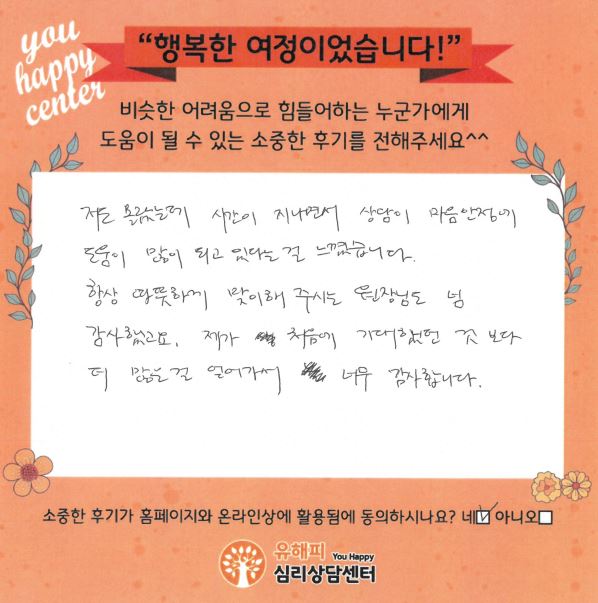 you
happy
center
“행복한 여정이었습니다!”
비슷한 어려움으로 힘들어하는 누군가에게
도움이 될 수 있는 소중한 후기를 전해주세요^^
저는 몰랐는데 시간이 지나면서 상담이 마음안정에
도움이 많이 되고 있다는 걸 느꼈습니다.
항상 따뜻하게 맞이해 주시는 원장님도 넘
감사했고요, 제가 처음에 기대했던 것 보다
더 많은 걸 얻어가서 너무 감사합니다.
소중한 후기가 홈페이지와 온라인상에 활용됨에 동의하시나요? 네☑ 아니오☐
유해피 You Happy
심리상담센터